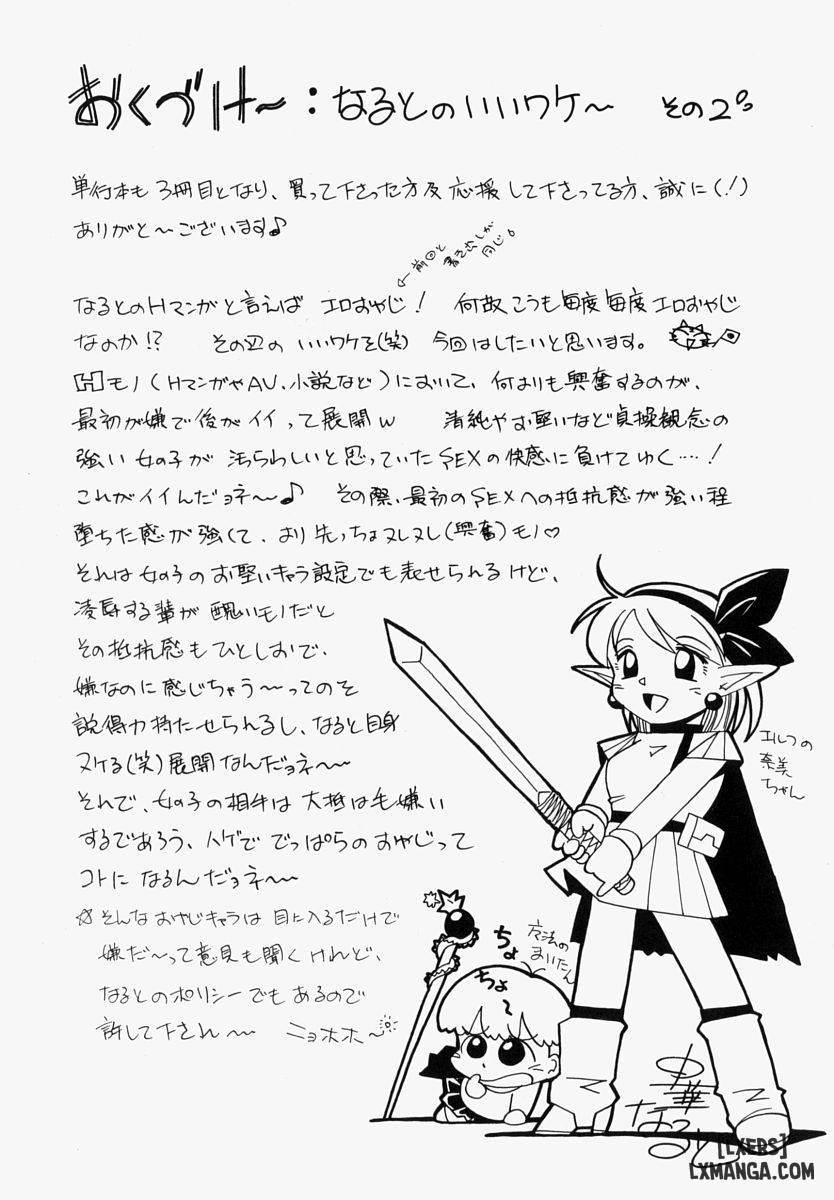 おくづけ〜：なるとのいいワケ〜 その2
単行本も3冊目となり、買って下さった方及応援して下さってる方、誠に(!)
ありがと〜ございます♪
←前回と
書き出しが
同じ。
なるとのHマンガと言えば エロおやじ！ 何故こうも毎度毎度エロおやじ
なのか!? その辺のいいワケを(笑) 今回はしたいと思います。
Hモノ(HマンガやAV、小説など)において、何よりも興奮するのが、
最初が嫌で後がイイって展開w 清純やお堅いなど貞操観念の
強い女の子が 汚らわしいと思っていたSEXの快感に負けてゆく…！
これがイイんだョネ〜♪ その際、最初のSEXへの抵抗感が強い程
堕ちた感が強くて、より先っちょヌレヌレ(興奮)モノ♡
それは女の子のお堅いキャラ設定でも表せられるけど、
凌辱する輩が醜いモノだと
その抵抗感もひとしおで、
嫌なのに感じちゃう〜ってのも
説得力持たせられるし、なると自身
ヌケる(笑)展開なんだョネ〜
それで、女の子の相手は大抵は毛嫌い
するであろう、ハゲで でっぱらのおやじって
コトになるんだョネ〜
☆そんなおやじキャラは目に入るだけで
嫌だ〜って意見も聞くけれど、
なるとのポリシーでもあるので
許して下され〜 ニョホホ〜
エルフの
奈美
ちゃん
魔法の
まいたん
ちょ
ちょ〜
中華
なると
[LXERS]
LXMANGA.COM